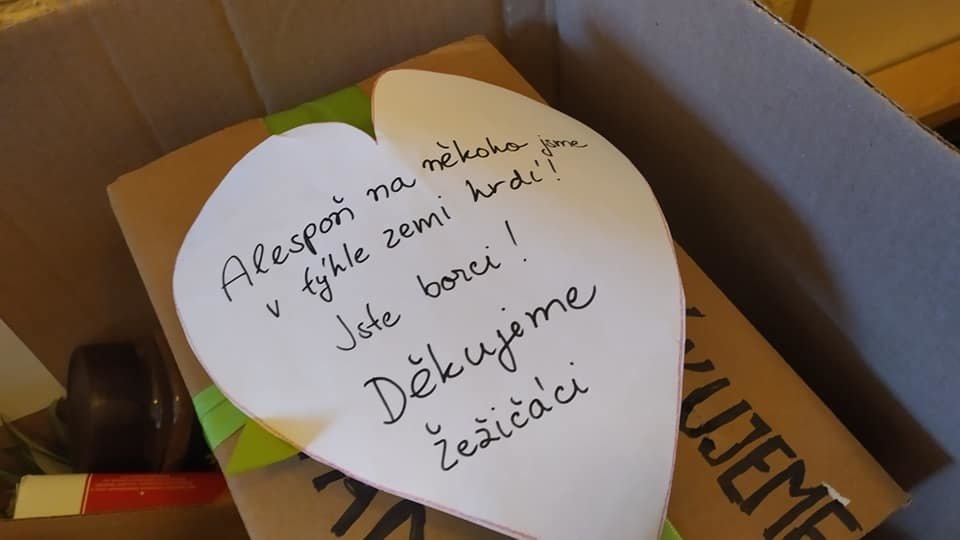 Alespoň na někoho jsme
v týhle zemi hrdí!
Jste borci!
Děkujeme
Žežičáci
KUJEME